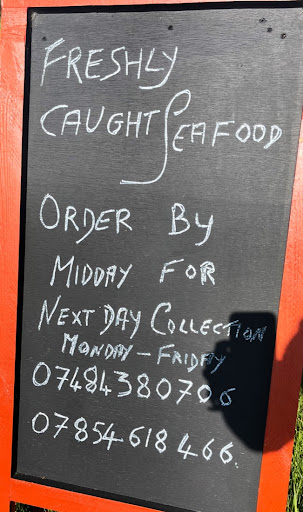 FRESHLY
CAUGHT SEAFOOD
ORDER BY
MIDDAY FOR
NEXT DAY COLLECTION
MONDAY - FRIDAY
07484380706
07854618466.